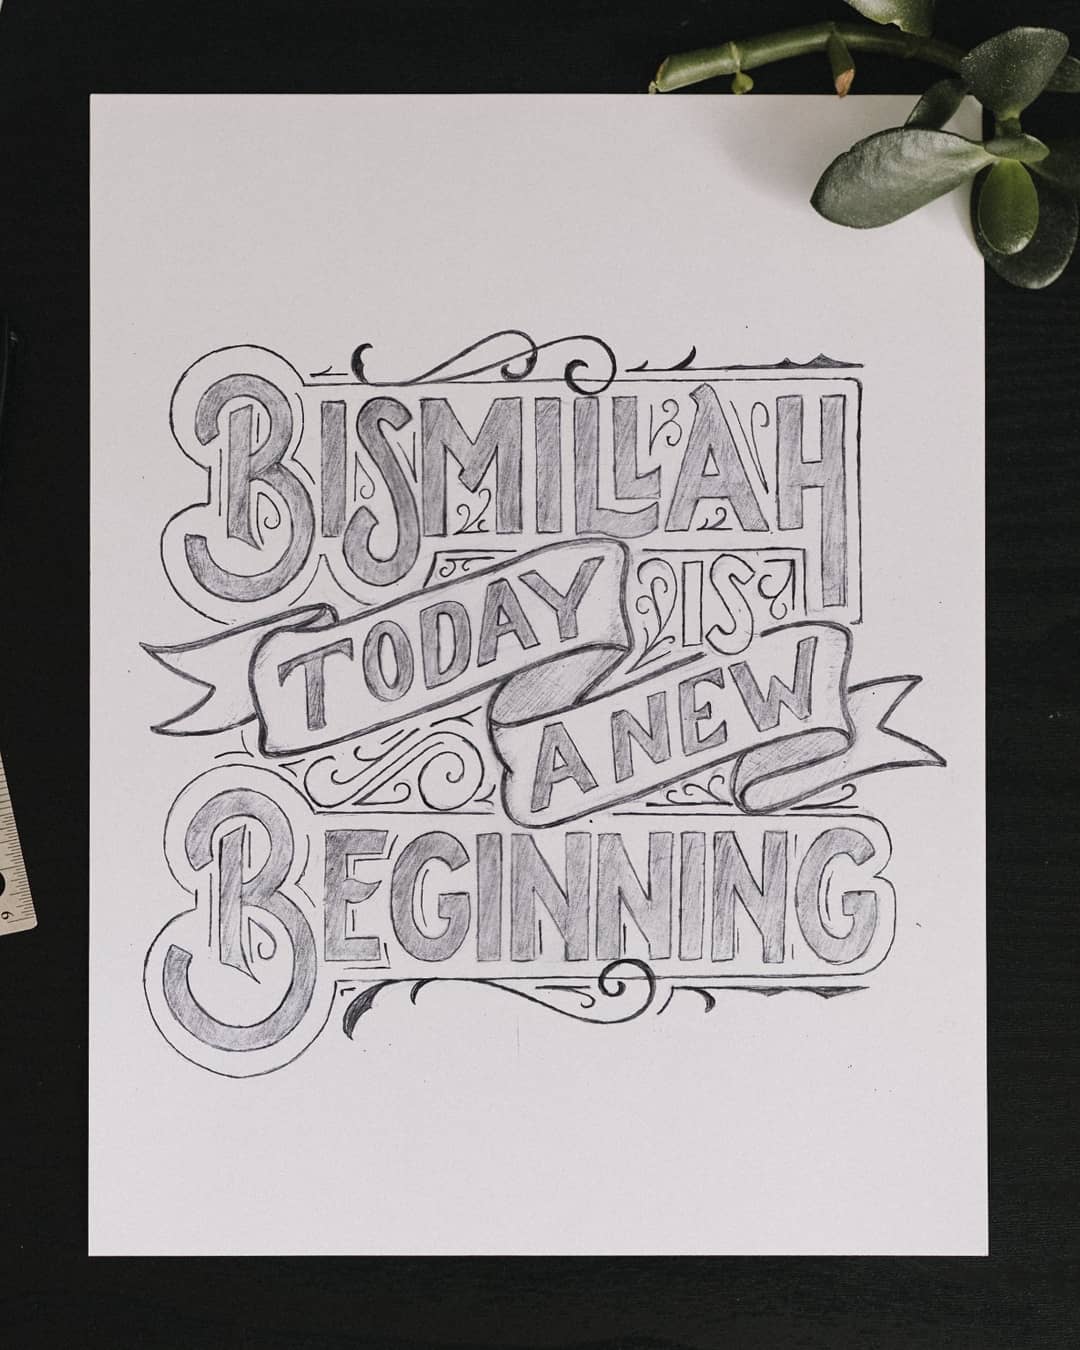 BISMILLAH
TODAY IS
A NEW
BEGINNING
6